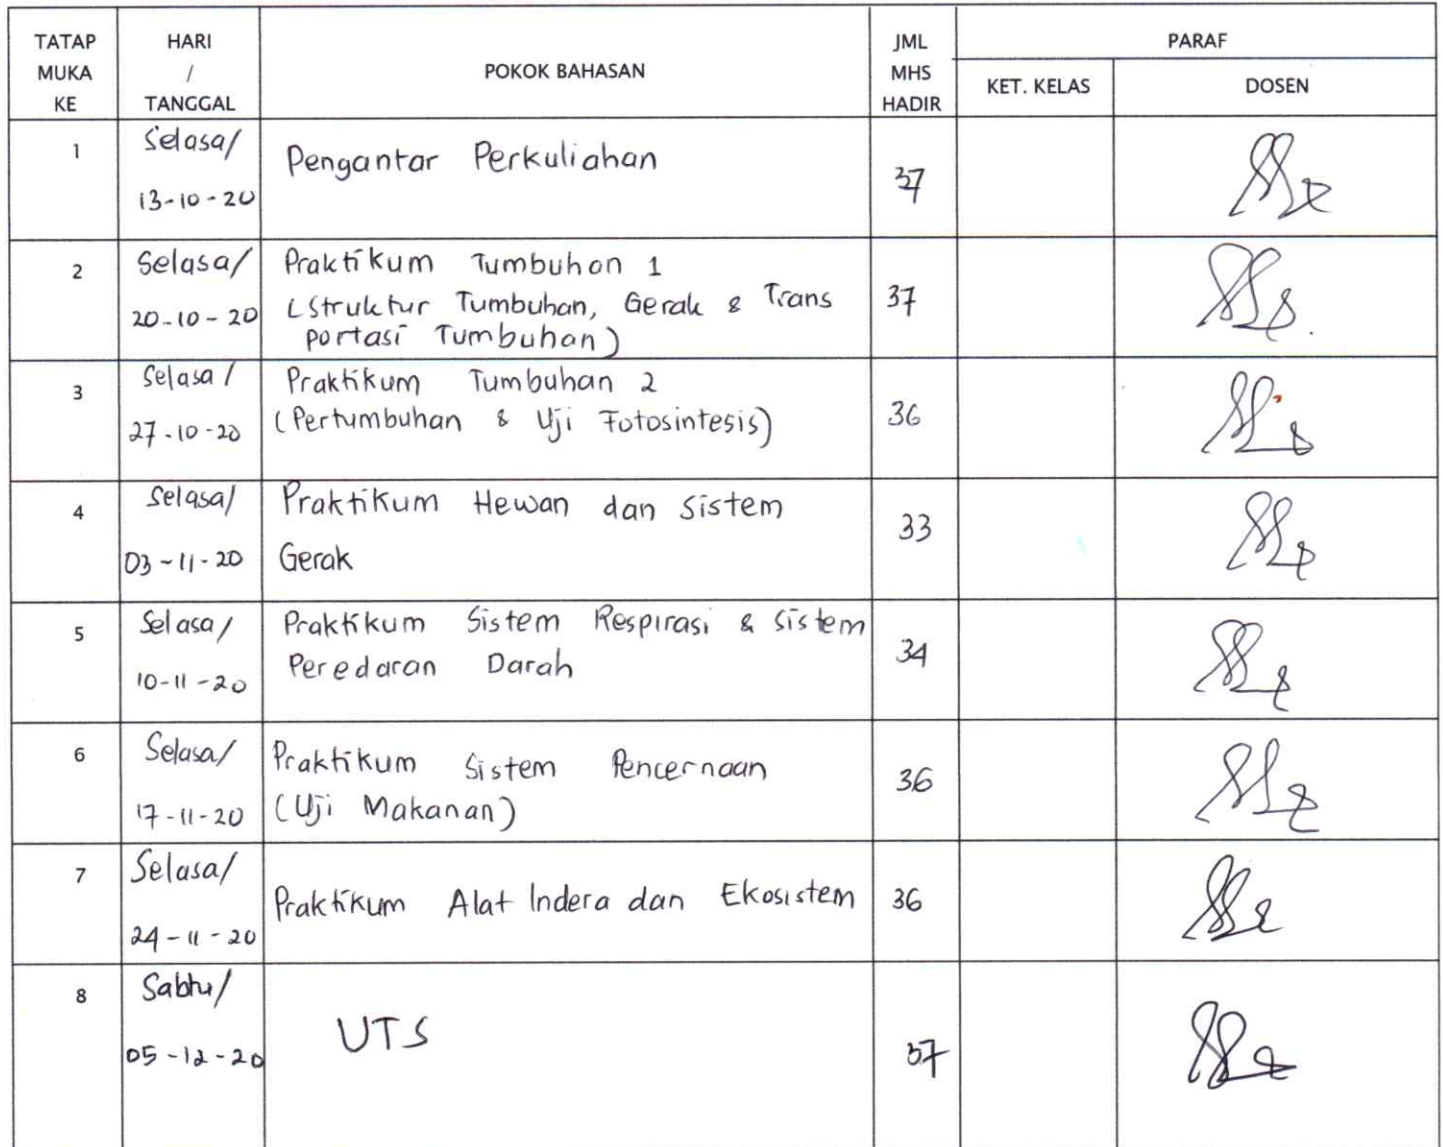 TATAP MUKA KE
HARI / TANGGAL
POKOK BAHASAN
JML MHS HADIR
PARAF
KET. KELAS
DOSEN
1
Selasa/
13-10-20
Pengantar Perkuliahan
37
2
Selasa/
20-10-20
Praktikum Tumbuhan 1
(Struktur Tumbuhan, Gerak & Trans
portasi Tumbuhan)
37
3
Selasa/
27-10-20
Praktikum Tumbuhan 2
(Pertumbuhan & Uji Fotosintesis)
36
4
Selasa/
03-11-20
Praktikum Hewan dan Sistem
Gerak
33
5
Selasa/
10-11-20
Praktikum Sistem Respirasi & Sistem
Peredaran Darah
34
6
Selasa/
17-11-20
Praktikum Sistem Pencernaan
(Uji Makanan)
36
7
Selasa/
24-11-20
Praktikum Alat Indera dan Ekosistem
36
8
Sabtu/
05-12-20
UTS
37